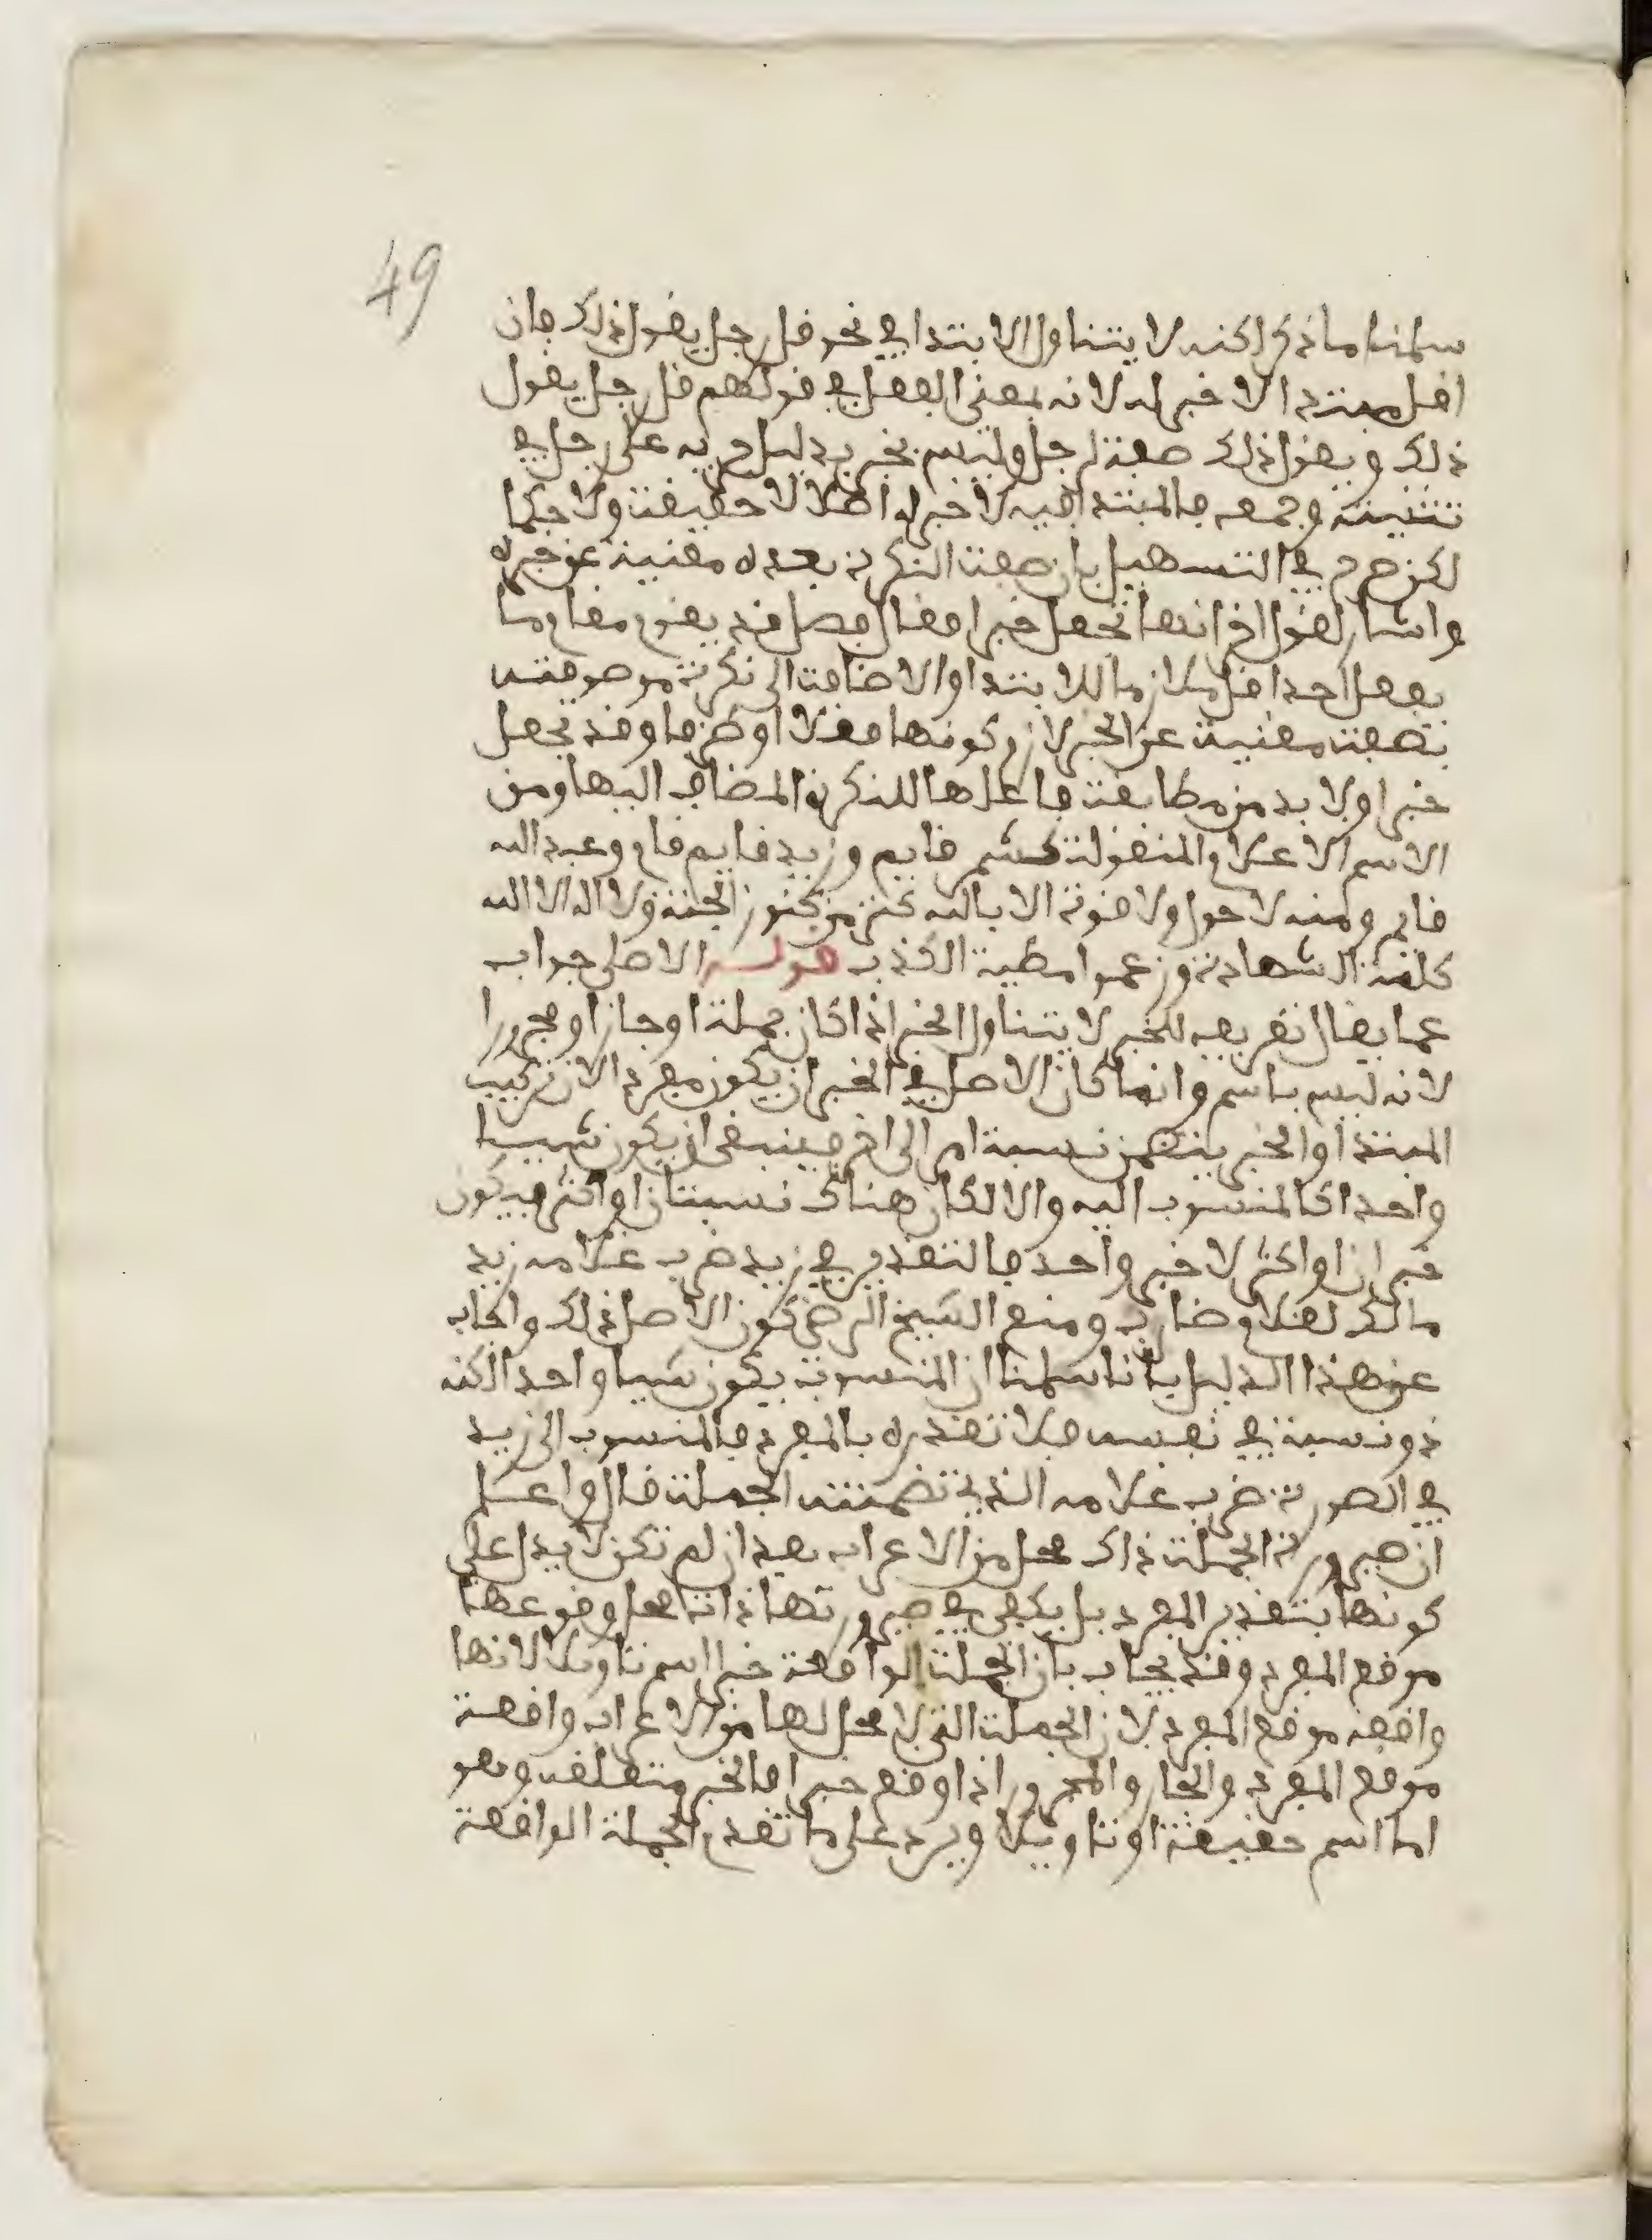 49
سلمنا ما ذكر لكنه لا يتناول الابتدا في نحو قل رجل يقول ذلك فان
اقل مبتدا لا خبر له لانه بمعنى الفعل في قولهم قل رجل يقول
ذلك ويقول ذلك صفة لرجل وليس بخبر بدليل جريه على رجل في
تثنيته وجمعه فالمبتدا فيه لا خبر له اصلا لا حقيقة ولا حكما
لكن صرح في التسهيل بان صفة النكرة بعده مغنية عن خبره
واشار لقول اخر انها تجعل خبرا فقال فصل قد يقوم مقام ما
يفعل احد اقل ملازما للابتدا والاضافة الى نكرة موصوفة
بصفة مغنية عن الخبر لازم كونها فعلا او ظرفا وقد تجعل
خبرا ولا بد من مطابقة فاعلها للنكرة المضاف اليها ومن
الاسم الاعلام المنقولة كشمر قايم وزيد قايم قام وعبد الله
قايم ومنه لا حول ولا قوة الا بالله كنز من كنوز الجنة ولا اله الا الله
كلمة الشهادة وزعموا مطية الكذب قوله الاصلي جواب
عما يقال تعريفه للخبر لا يتناول الخبر اذا كان جملة او جارا ومجرورا
لانه ليس باسم وانما كان الاصل في الخبر ان يكون مفردا لان تركيب
المبتدا والخبر يتضمن نسبة امر الى اخر فينبغي ان يكون شييا
واحدا كالمنسوب اليه والا لكان هناك نسبتان او اكثر فيكون
خبران او اكثر لا خبر واحد فالتقدير في زيد ضرب غلامه زيد
مالك لغلام ضارب ومنع الشيخ الرضي كون الاصل ذلك واجاب
عن هذا الدليل بانا سلمنا ان المنسوب يكون شييا واحدا لكنه
ذو نسبة في نفسه فلا تقدره بالمفرد فالمنسوب الى زيد
في الصورة ضرب غلامه الذي تضمنته الجملة قال واعلم
ان صيرورة الجملة ذات محل من الاعراب بعد ان لم تكن لا يدل على
كونها بتقدير المفرد بل يكفي في صيرورتها ذات محل وقوعها
موقع المفرد وقد يجاب بان الجملة الواقعة خبرا اسم تاويلا لانها
واقعة موقع المفرد لان الجملة التي لا محل لها من الاعراب واقعة
موقع المفرد والجار والمجرور اذا وقع خبرا فالخبر متعلقه وهو
اما اسم حقيقة او تاويلا ويرد على ما تقدم الجملة الواقعة